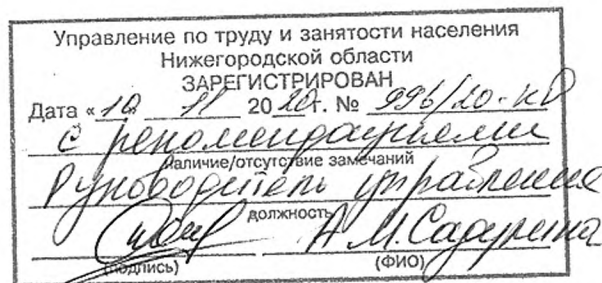 Управление по труду и занятости населения
Нижегородской области
ЗАРЕГИСТРИРОВАН
Дата «10» 11 2020г. № 996/20-КД
с рекомендациями
наличие/отсутствие замечаний
Руководитель управления
должность
А.М.Садулина
(подпись) (ФИО)